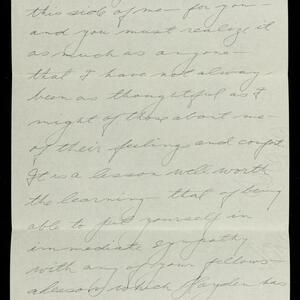 this side of me – for you –
and you must realize it
as much as anyone –
that I have not always
been as thoughtful as I
might of those about me –
of their feelings and comfort.
It is a lesson well worth
the learning – that of being
able to put yourself in
immediate sympathy
with any of your fellows –
a lesson which Hayden has